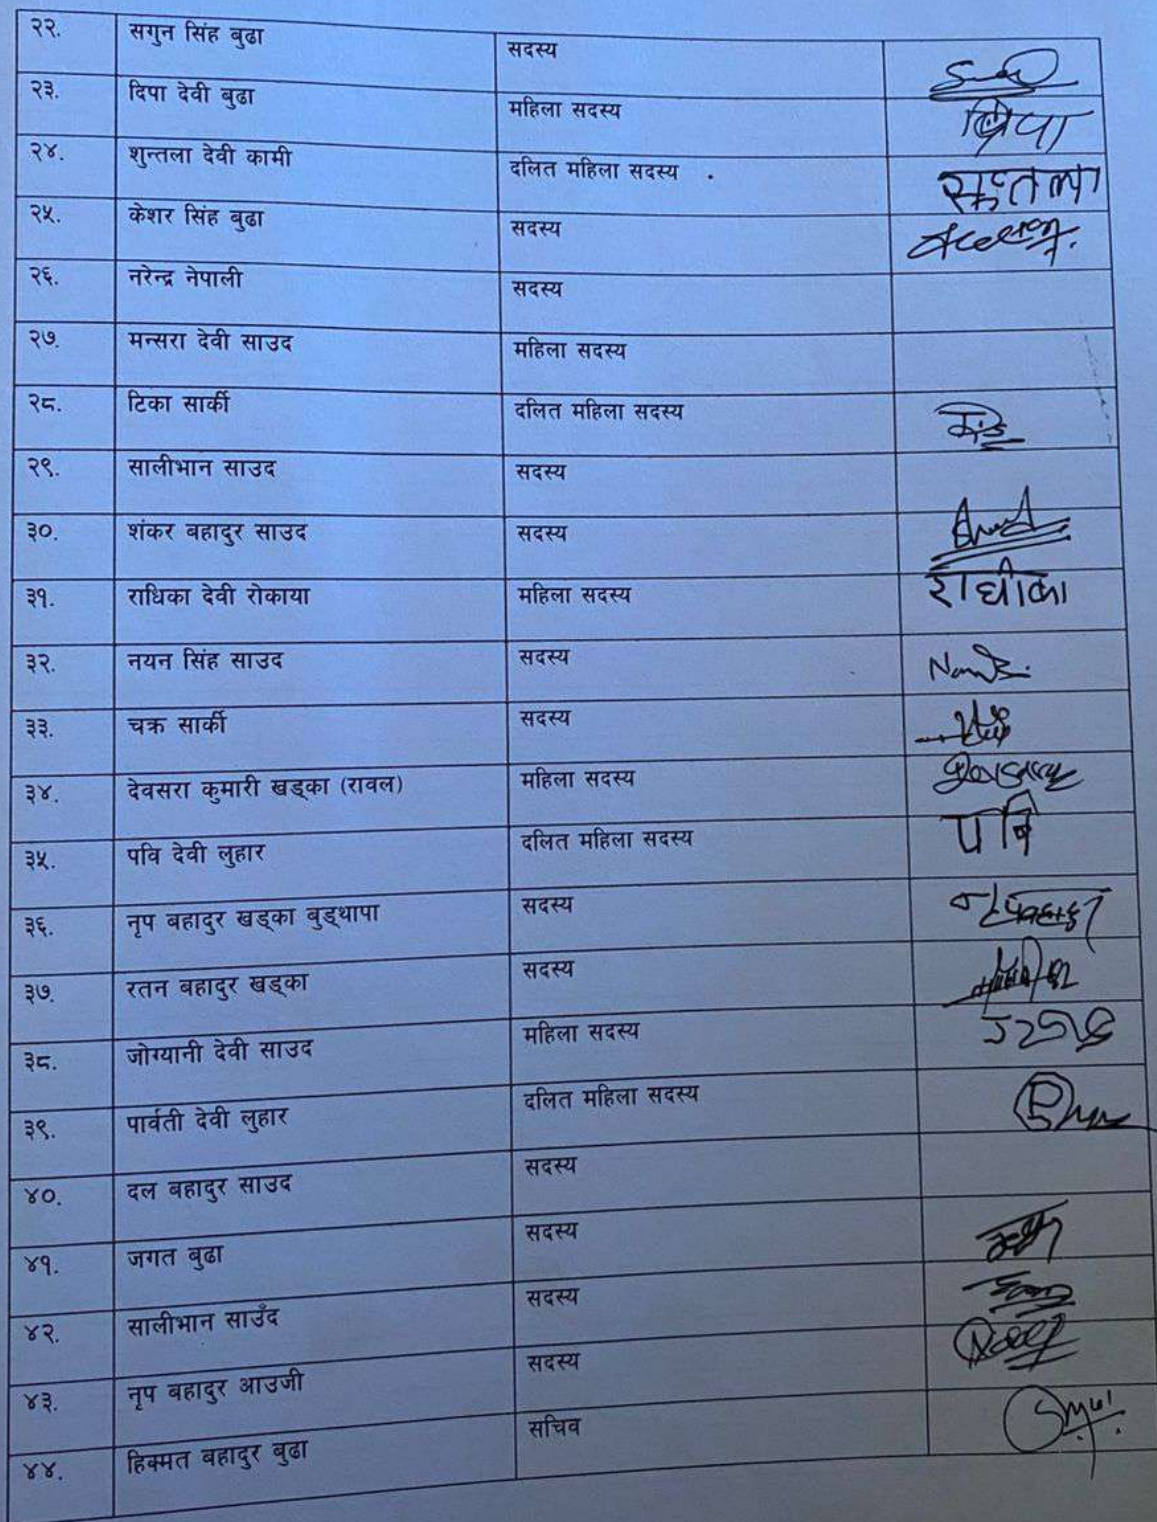 २२. सगुन सिंह बुढा सदस्य
२३. दिपा देवी बुढा महिला सदस्य
२४. शुन्तला देवी कामी दलित महिला सदस्य
२५. केशर सिंह बुढा सदस्य
२६. नरेन्द्र नेपाली सदस्य
२७. मन्सरा देवी साउद महिला सदस्य
२८. टिका सार्की दलित महिला सदस्य
२९. सालीभान साउद सदस्य
३०. शंकर बहादुर साउद सदस्य
३१. राधिका देवी रोकाया महिला सदस्य राधीका
३२. नयन सिंह साउद सदस्य
३३. चक्र सार्की सदस्य
३४. देवसरा कुमारी खड्का (रावल) महिला सदस्य
३५. पवि देवी लुहार दलित महिला सदस्य पवि
३६. नृप बहादुर खड्का बुड्थापा सदस्य
३७. रतन बहादुर खड्का सदस्य
३८. जोग्यानी देवी साउद महिला सदस्य
३९. पार्वती देवी लुहार दलित महिला सदस्य
४०. दल बहादुर साउद सदस्य
४१. जगत बुढा सदस्य
४२. सालीभान साउँद सदस्य
४३. नृप बहादुर आउजी सदस्य
४४. हिक्मत बहादुर बुढा सचिव